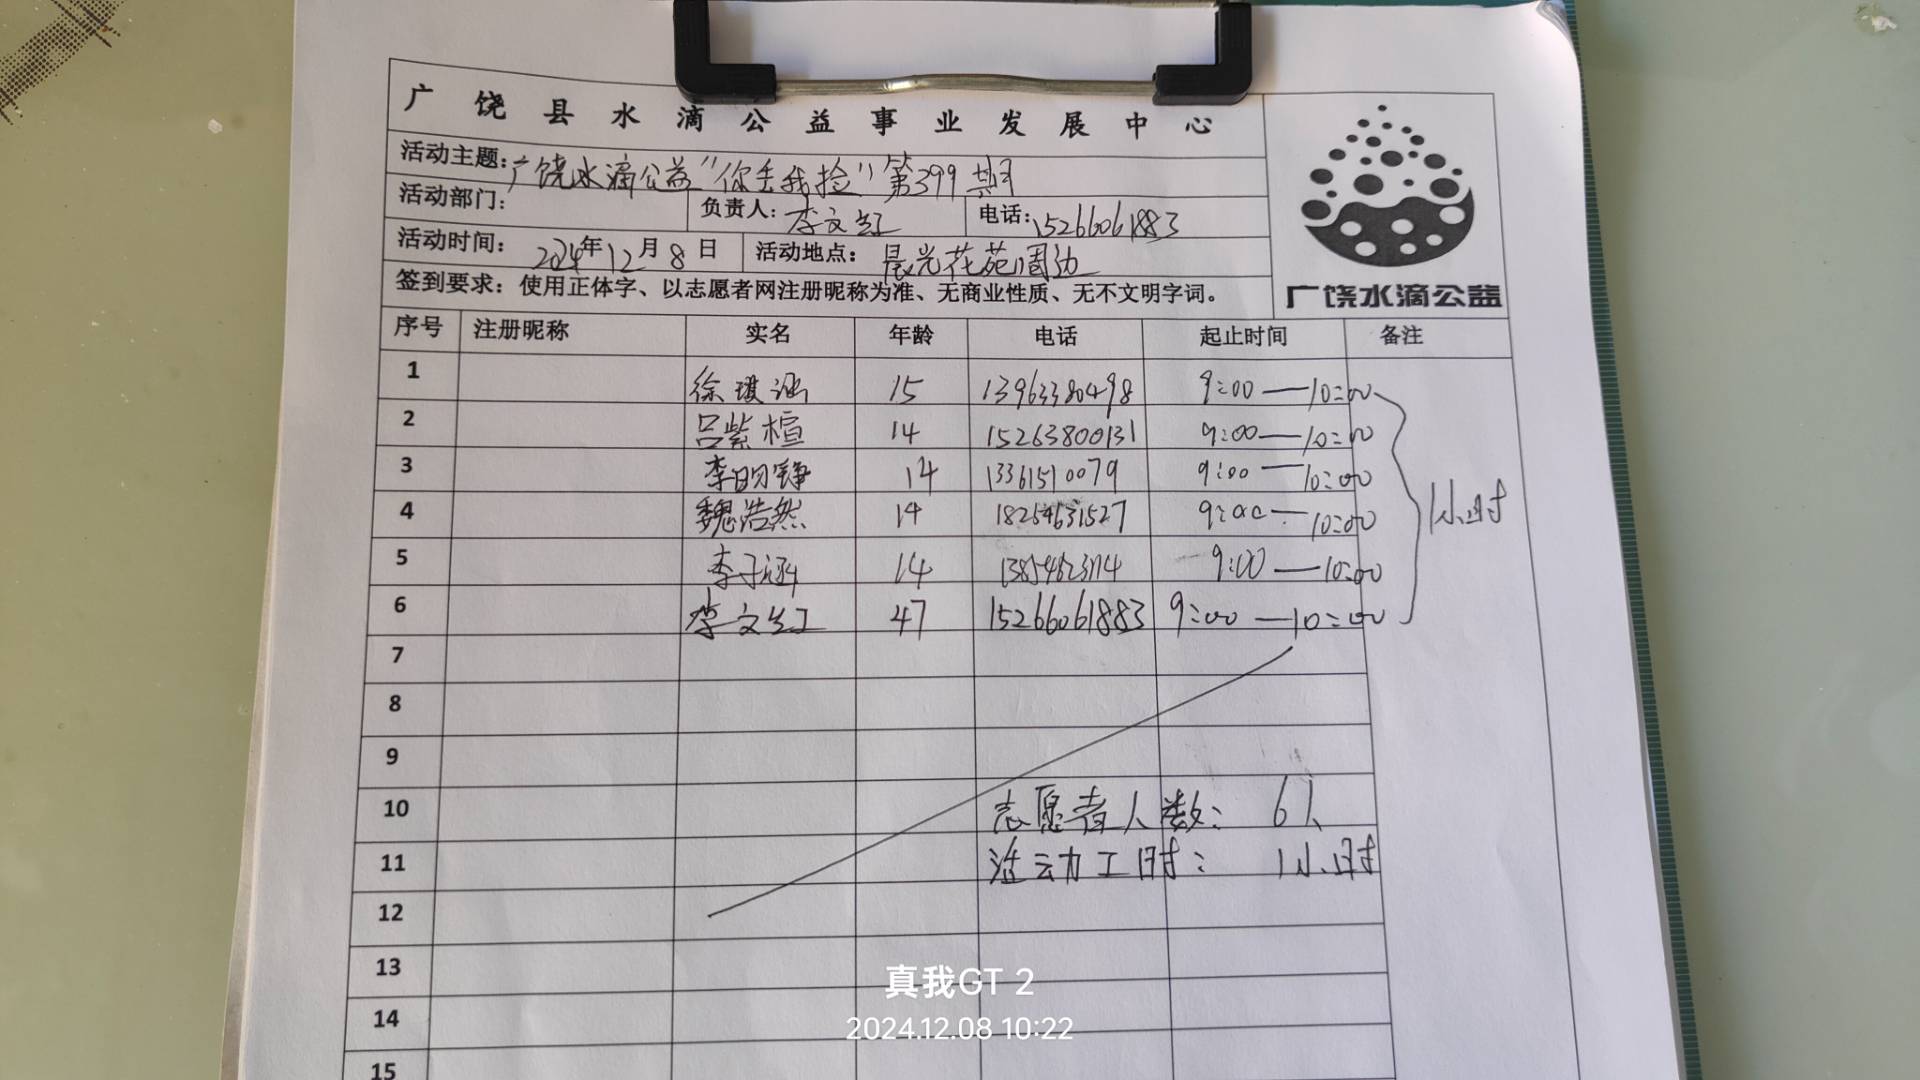 广饶县水滴公益事业发展中心
活动主题：广饶水滴公益“你丢我捡”第399期
活动部门： 负责人：李文红 电话：15266061883
活动时间：2024年12月8日 活动地点：晨光花苑周边
签到要求：使用正体字、以志愿者网注册昵称为准、无商业性质、无不文明字词。
广饶水滴公益
序号 注册昵称 实名 年龄 电话 起止时间 备注
1 徐 涵 15 13963380498 9:00—10:00
2 吕紫楦 14 15263800131 9:00—10:00
3 李明铮 14 13361510079 9:00—10:00
4 魏浩然 14 18254631527 9:00—10:00
1小时
5 李子涵 14 9:00—10:00
6 李文红 47 15266061883 9:00—10:00
7
8
9
10 志愿者人数： 6人
11 活动工时： 1小时
12
13
真我GT 2
14
2024.12.08 10:22
15